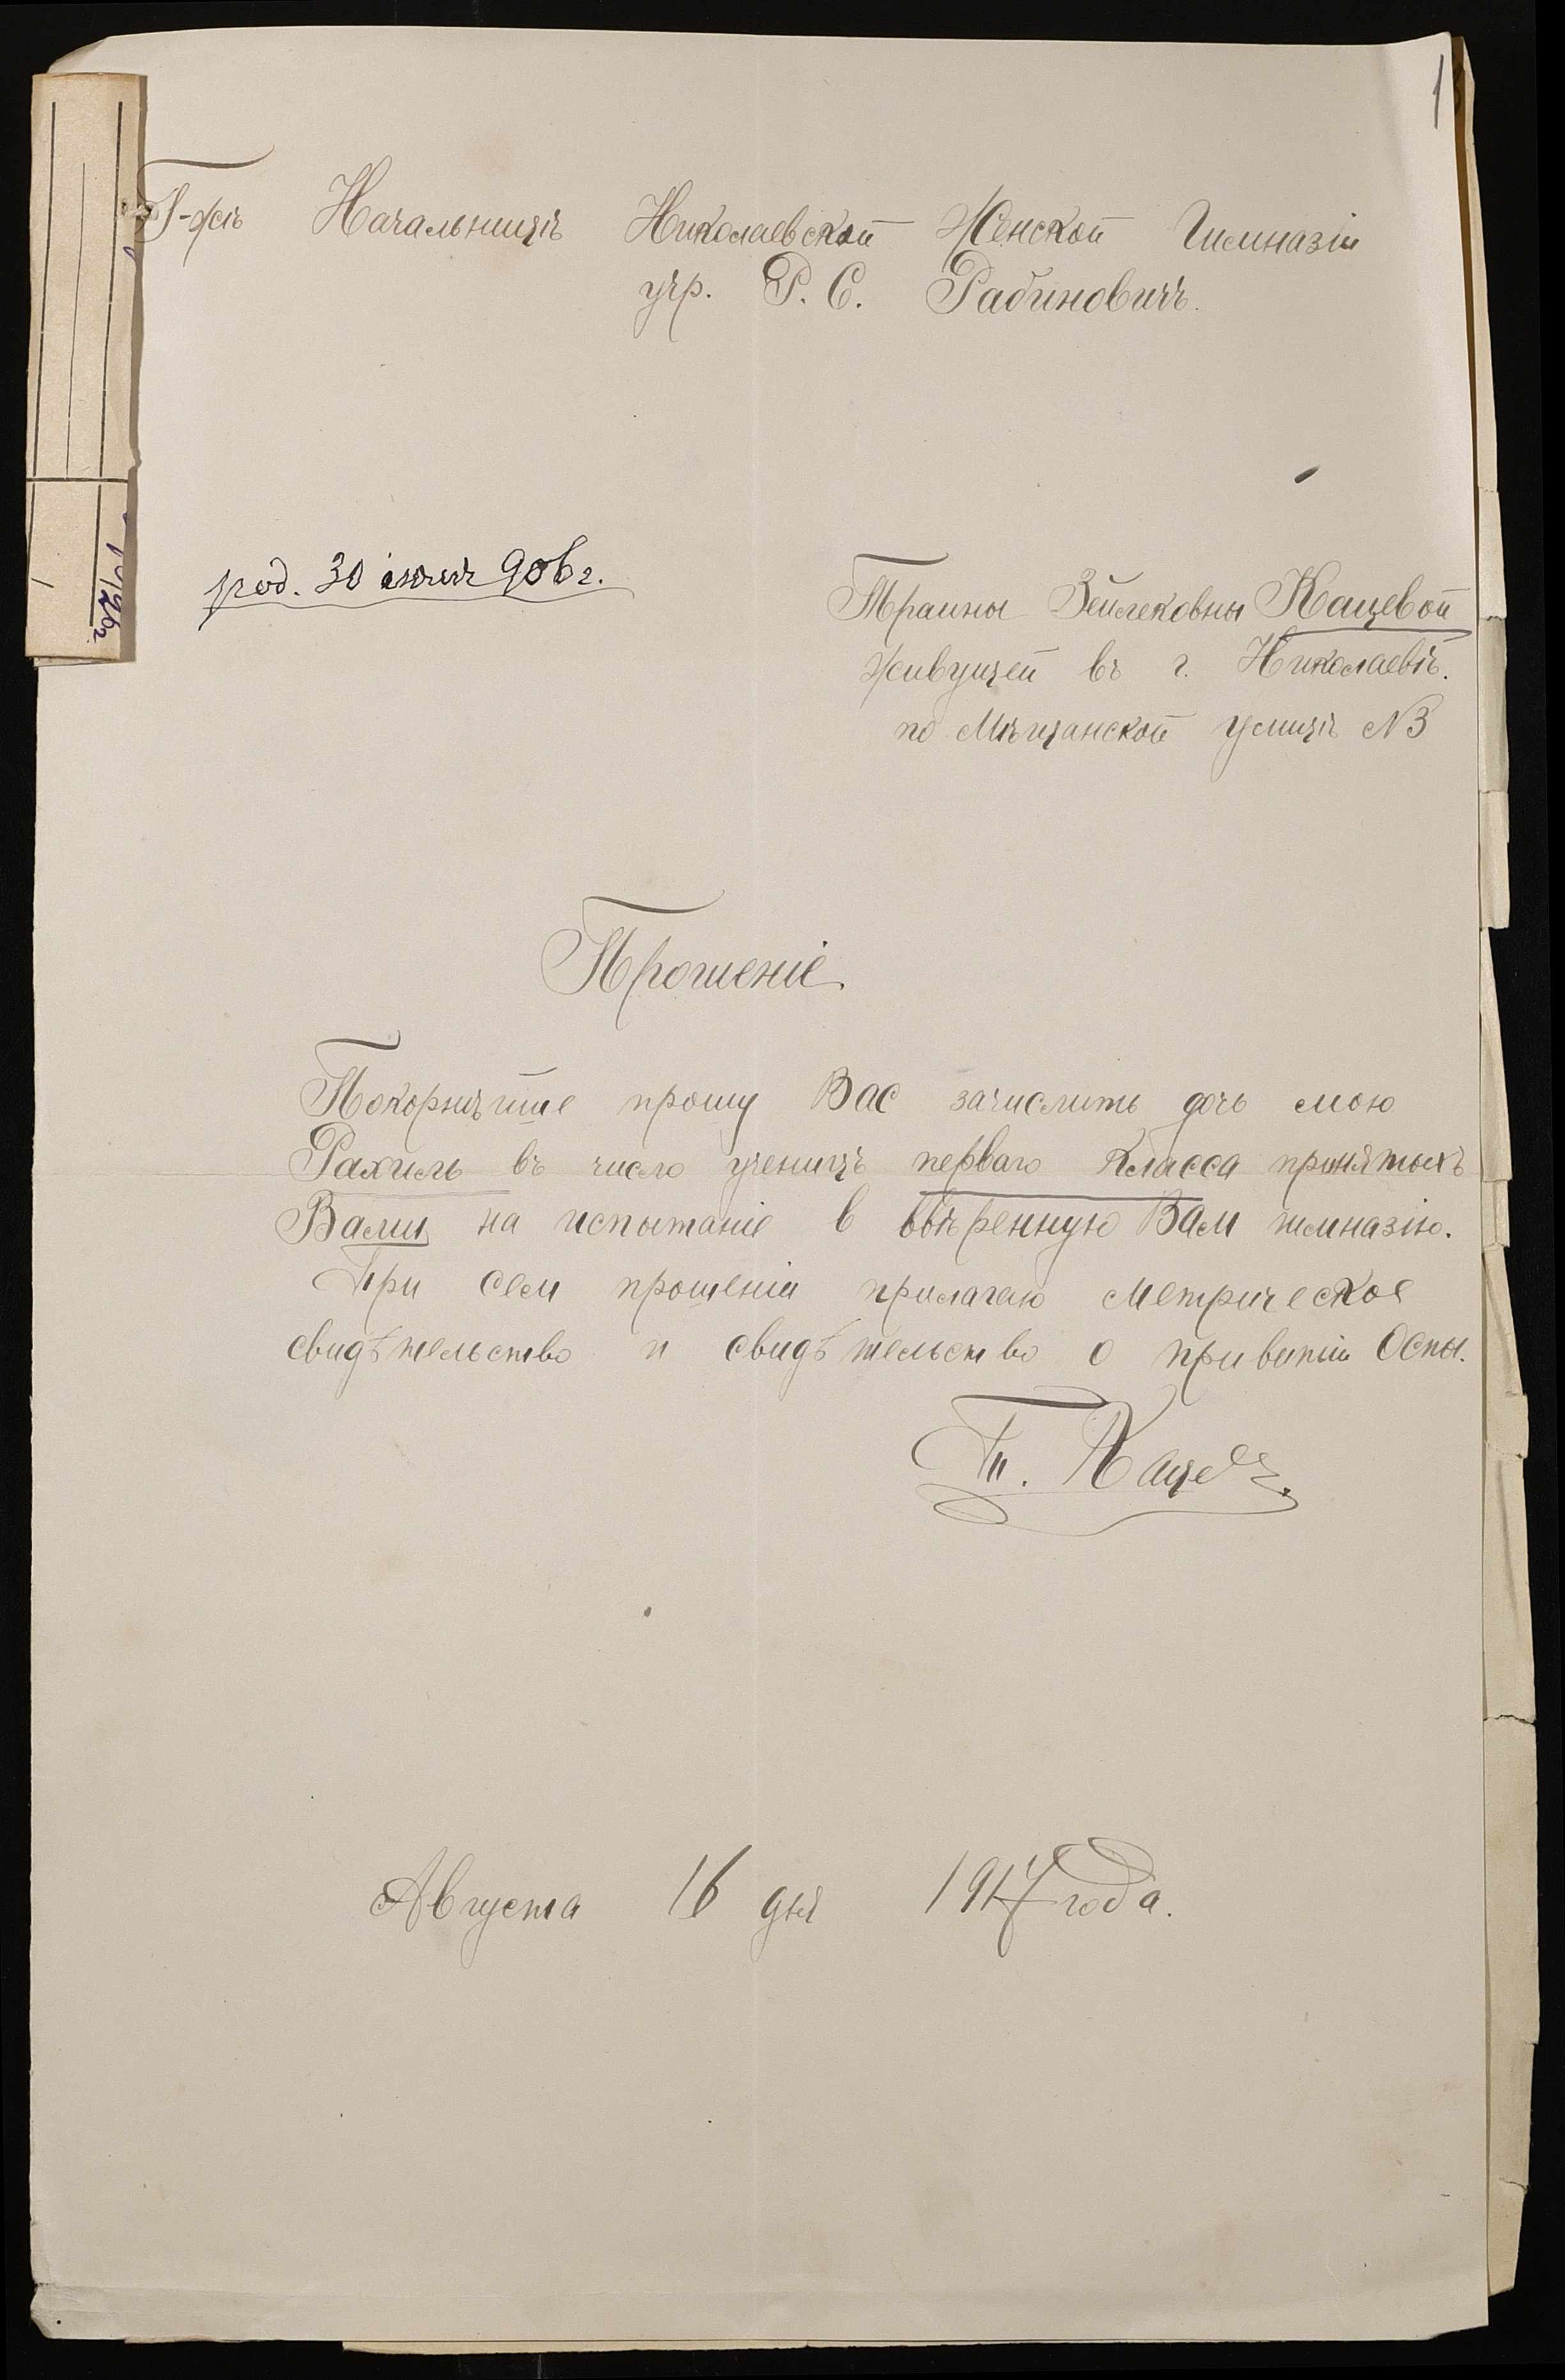 1
Г-жѣ Начальницѣ Николаевской Женской Гимназіи
учр. Р. С. Рабиновичъ.
род. 30 906 г.
Зейлековны Кацевой
живущей въ г. Николаевѣ.
по Мѣщанской улицѣ N 3
Прошеніе.
Покорнѣйше прошу Вас зачислить дочь мою
Рахиль въ число ученицъ перваго Класса принятыхъ
Вами на испытаніе в ввѣренную Вам гимназію.
При сем прошеніи прилагаю метрическое
свидѣтельство и свидѣтельство о привитіи Оспы.
Т. Кацевъ.
Августа 16 дня 1917 года.